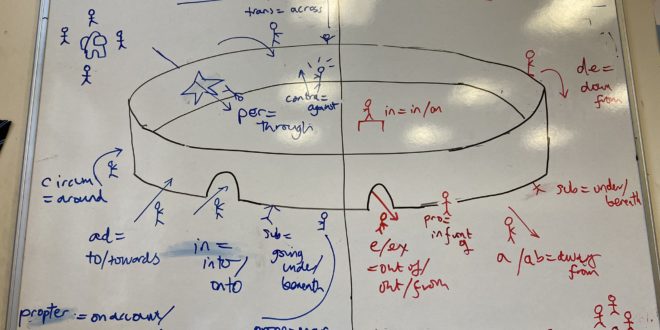 trans = across
contra =
against
per =
through
in = in/on
de =
down
from
circum
= around
sub = under/
beneath
ad =
to/towards
in =
into/
onto
sub =
going
under/
beneath
e/ex
= out of/
out/from
pro =
in front
of
a/ab = away
from
propter = on account/